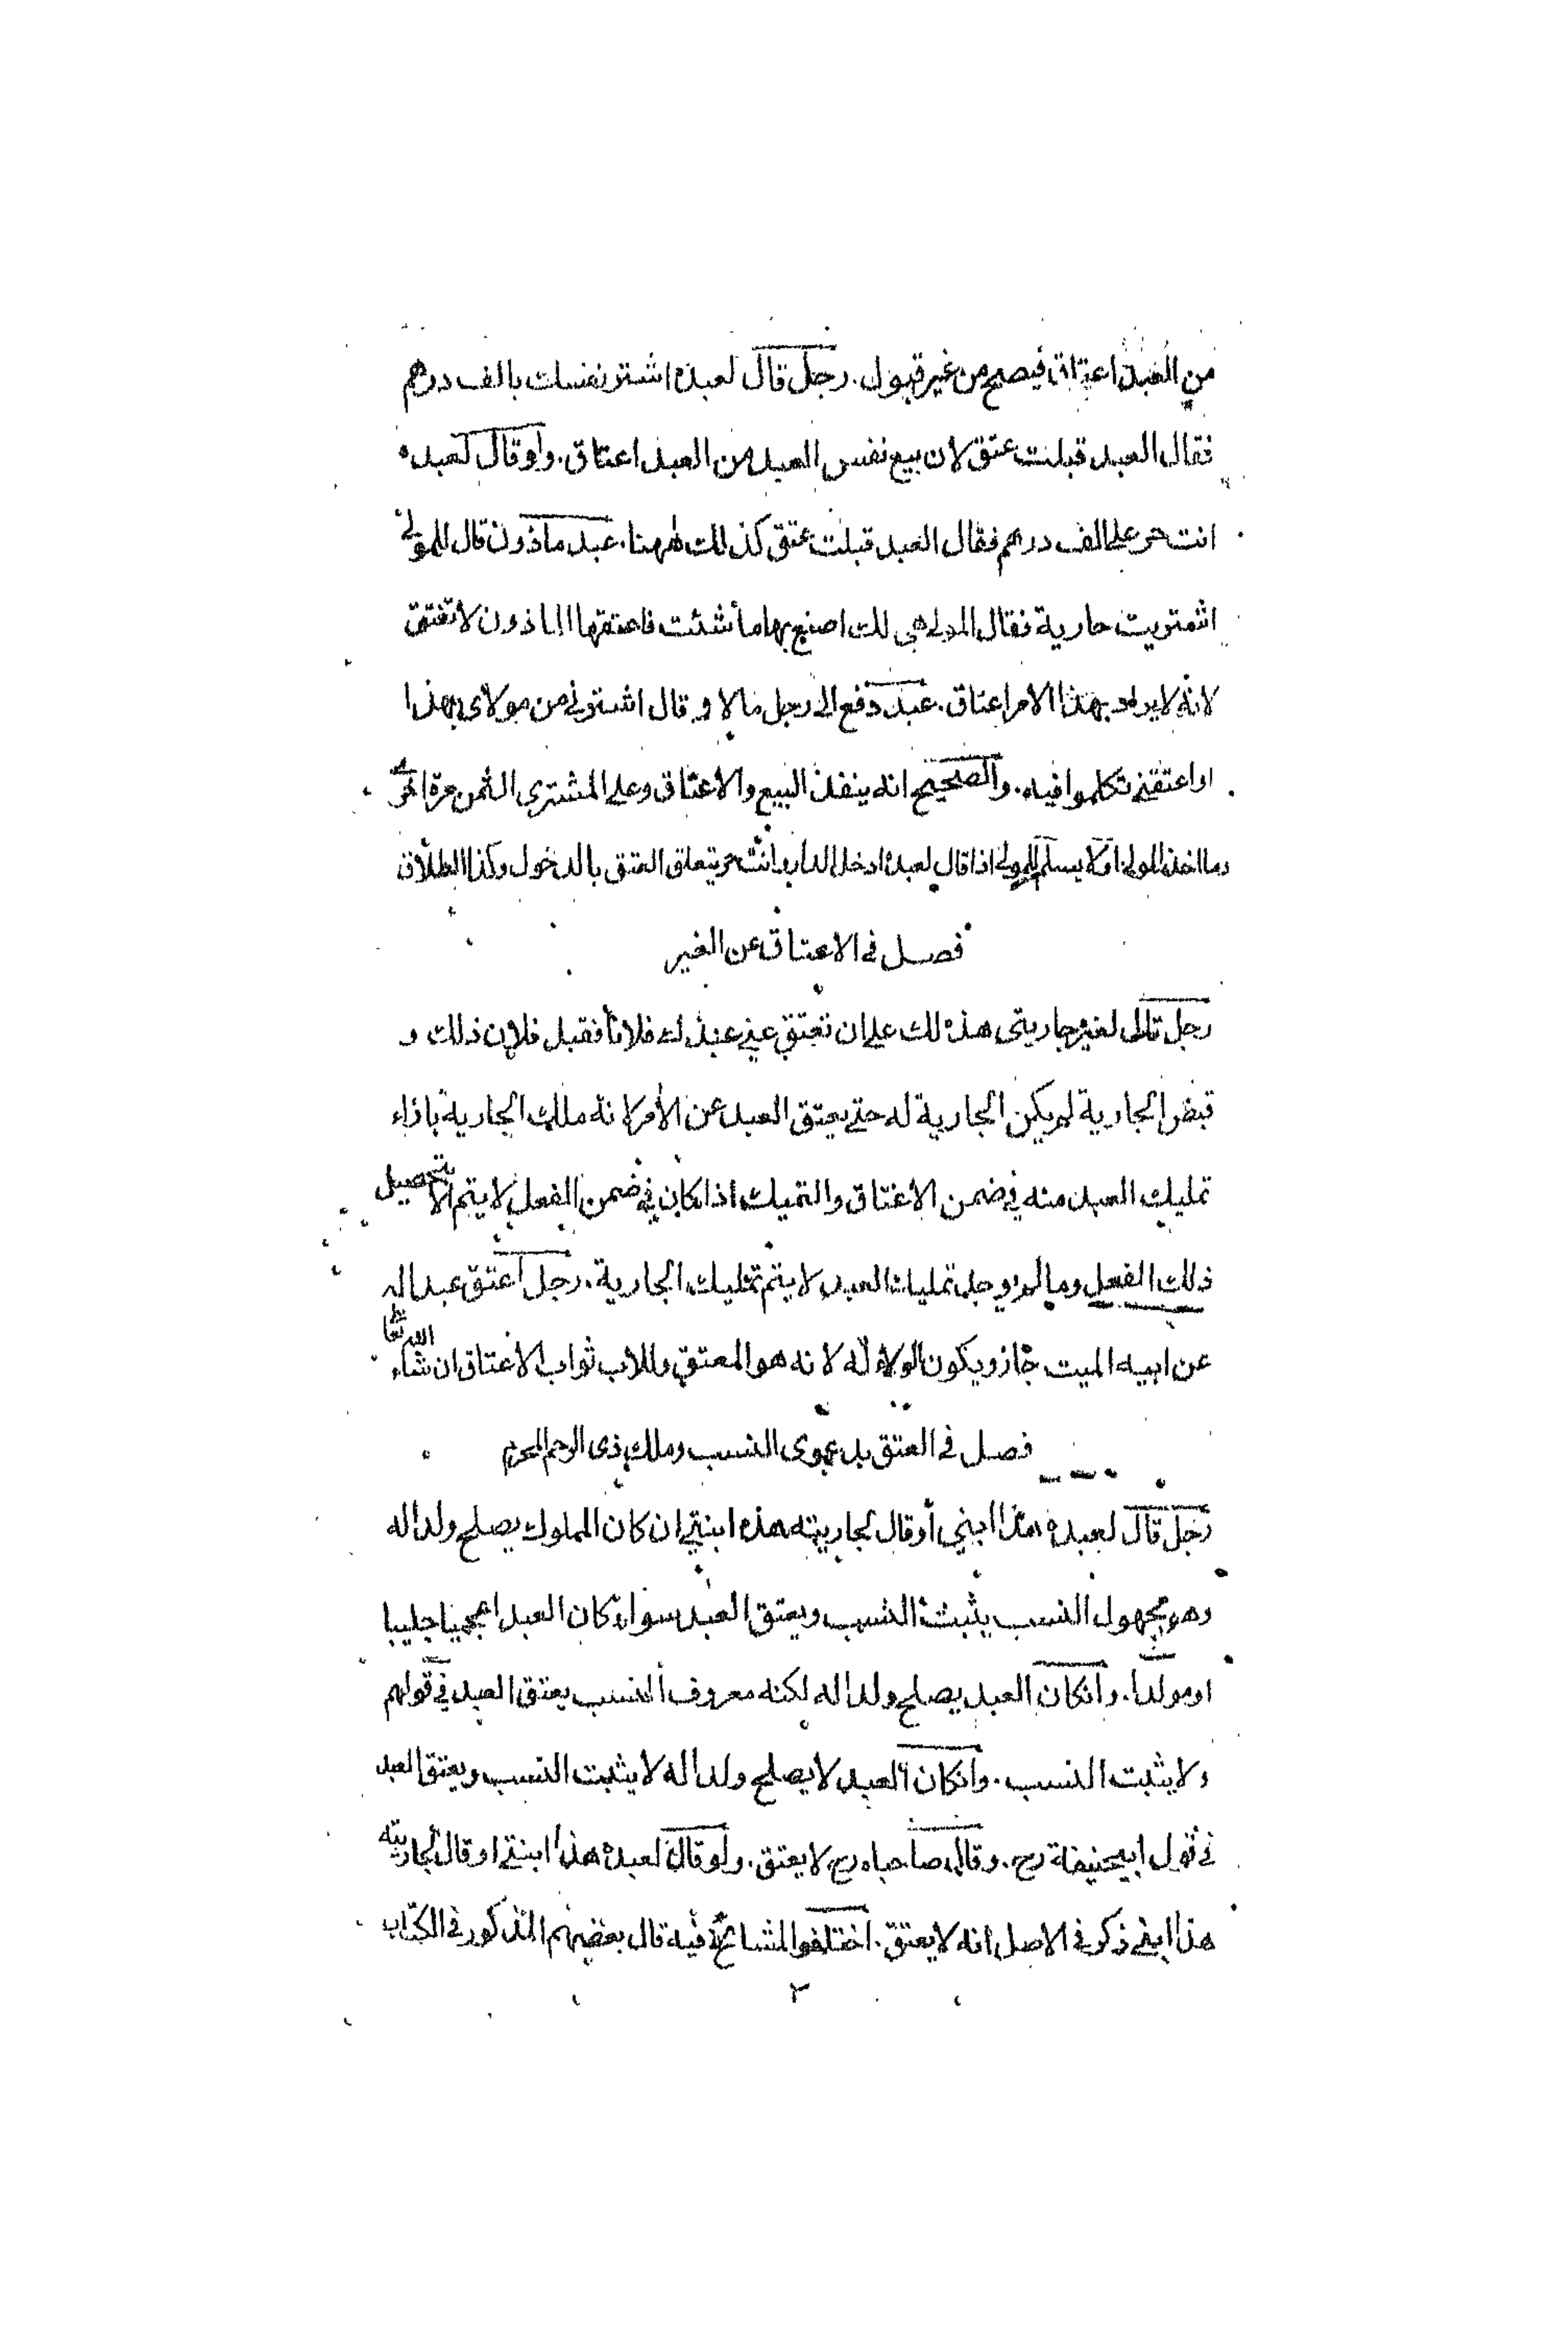 من العبد اعتاق فيصح من غير قبول. رجل قال لعبده اشتر نفسك بالف درهم
فقال العبد قبلت عتق لان بيع نفس العبد من العبد اعتاق. ولو قال لعبده
انت حر على الف درهم فقال العبد قبلت عتق كذلك ههنا. عبد ماذون قال للمولى
اشتريت جارية فقال المولى هي لك اصنع بها ما شئت فاعتقها الماذون لا تعتق
لانه لا يراد بهذا الامر اعتاق. عبد دفع الى رجل مالا و قال اشترني من مولاى بهذا
او اعتقني تكلموا فيه. والصحيح انه ينفذ البيع والاعتاق وعلى المشترى الثمن مرة اخرى
وما اخذ المولى اولا يسلم للمولى اذا قال لعبده ادخل الدار وانت حر يتعلق العتق بالدخول وكذا الطلاق
فصل في الاعتاق عن الغير
رجل قال لغيره جاريتى هذه لك على ان تعتق عني عبدك فلانا فقبل فلان ذلك و
قبض الجارية لم يكن الجارية له حتى يعتق العبد عن الأمر لانه ملك الجارية بازاء
تمليك العبد منه في ضمن الاعتاق والتمليك اذا كان في ضمن الفعل لا يتم الا بتحصيل
ذلك الفعل وما لم يوجد تمليك العبد لا يتم تمليك الجارية. رجل اعتق عبدا له
عن ابيه الميت جاز ويكون الولاء له لانه هو المعتق وللاب ثواب الاعتاق ان شاء الله تعا
فصل في العتق بدعوى النسب وملك ذى الرحم المحرم
رجل قال لعبده هذا ابني أو قال لجاريته هذه ابنتي ان كان المملوك يصلح ولدا له
وهو مجهول النسب يثبت النسب ويعتق العبد سواء كان العبد اعجميا جليبا
او مولدا. وانكان العبد يصلح ولدا له لكنه معروف النسب يعتق العبد في قولهم
ولا يثبت النسب. وانكان العبد لا يصلح ولدا له لا يثبت النسب ويعتق العبد
في قول ابيحنيفة رح. وقال صاحباه رح لا يعتق. ولو قال لعبده هذا ابنتي او قال لجاريته
هذا ابني ذكر في الاصل انه لا يعتق. اختلفوا المشائخ فيه قال بعضهم المذكور في الكتاب